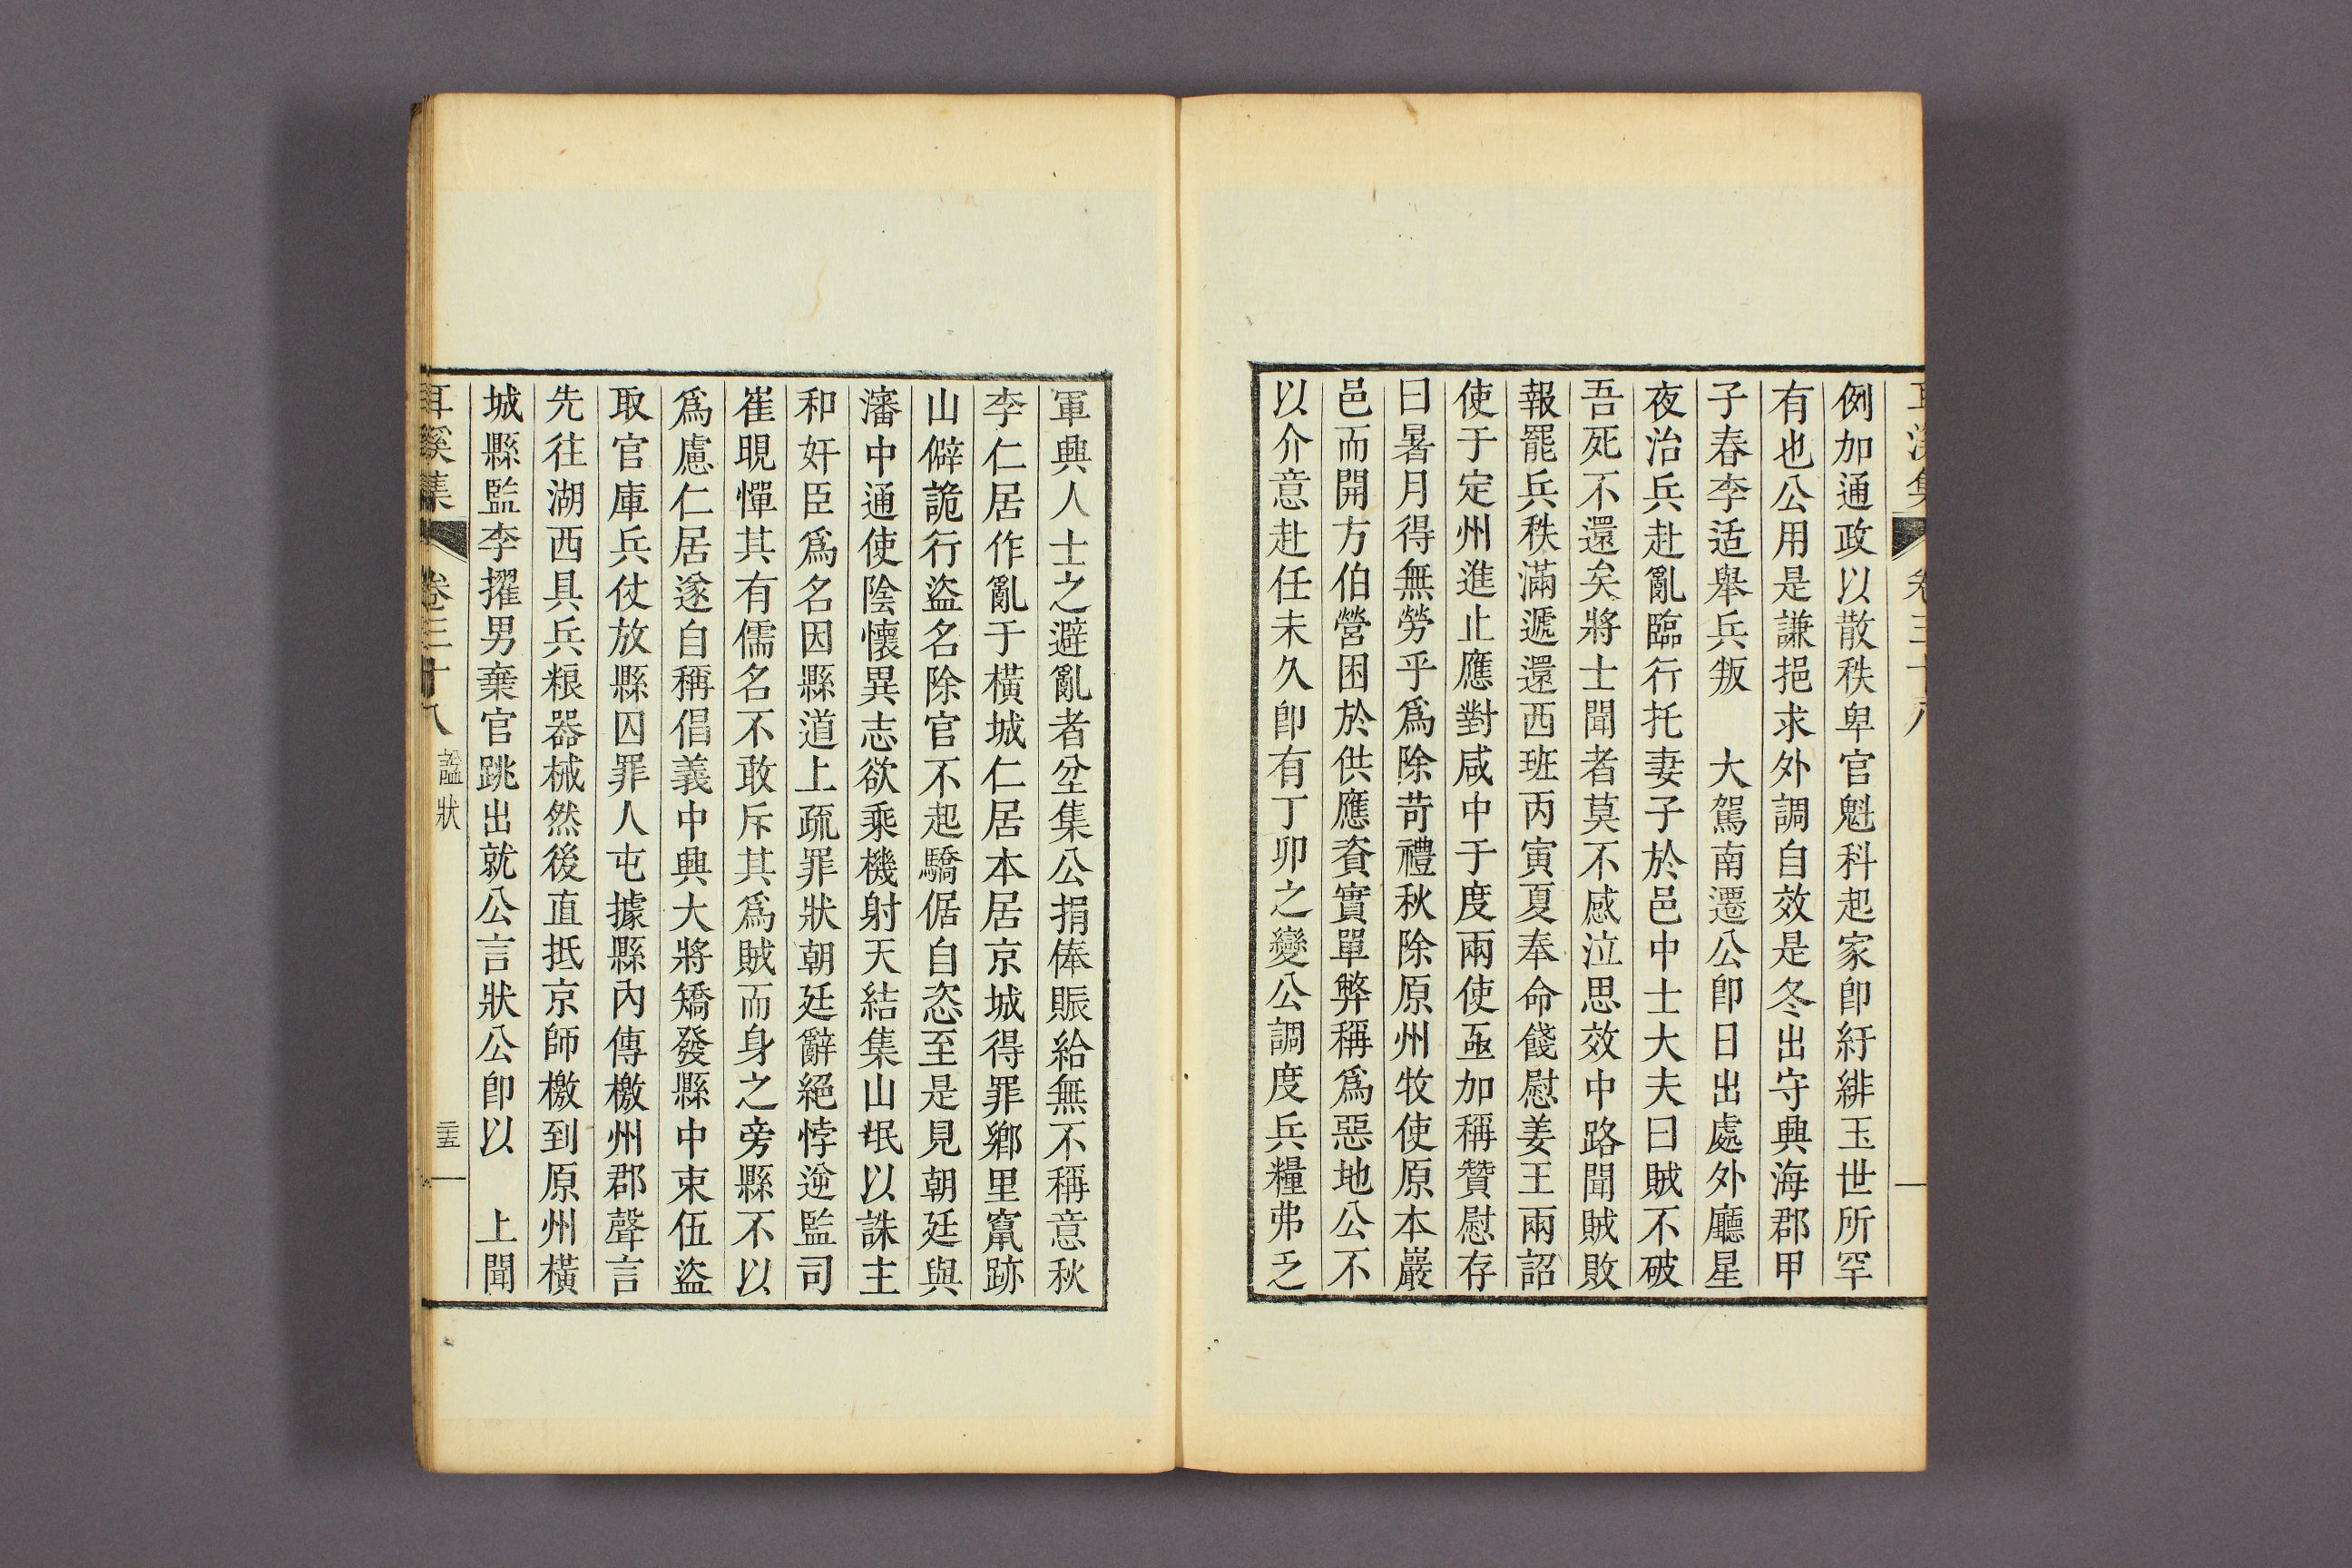 例加通政以散秩卑官魁科起家卽紆緋玉世所罕
有也公用是謙挹求外調自效是冬出守興海郡甲
子春李适舉兵叛　大駕南遷公卽日出處外廳星
夜治兵赴亂臨行托妻子於邑中士大夫曰賊不破
吾死不還矣將士聞者莫不感泣思效中路聞賊敗
報罷兵秩滿遞還西班丙寅夏奉命餞慰姜王兩詔
使于定州進止應對咸中于度兩使亟加稱贊慰存
曰暑月得無勞乎爲除苛禮秋除原州牧使原本巖
邑而開方伯營困於供應資實單弊稱爲惡地公不
以介意赴任未久卽有丁卯之變公調度兵糧弗乏
軍興人士之避亂者坌集公捐俸賑給無不稱意秋
李仁居作亂于橫城仁居本居京城得罪鄕里竄跡
山僻詭行盜名除官不起驕倨自恣至是見朝廷與
瀋中通使陰懷異志欲乘機射天結集山氓以誅主
和奸臣爲名因縣道上疏罪狀朝廷辭絕悖逆監司
崔晛憚其有儒名不敢斥其爲賊而身之旁縣不以
爲慮仁居遂自稱倡義中興大將矯發縣中束伍盜
取官庫兵仗放縣囚罪人屯據縣內傳檄州郡聲言
先往湖西具兵粮器械然後直抵京師檄到原州橫
城縣監李擢男棄官跳出就公言狀公卽以　上聞
耳溪集　卷三十八　諡狀　三五